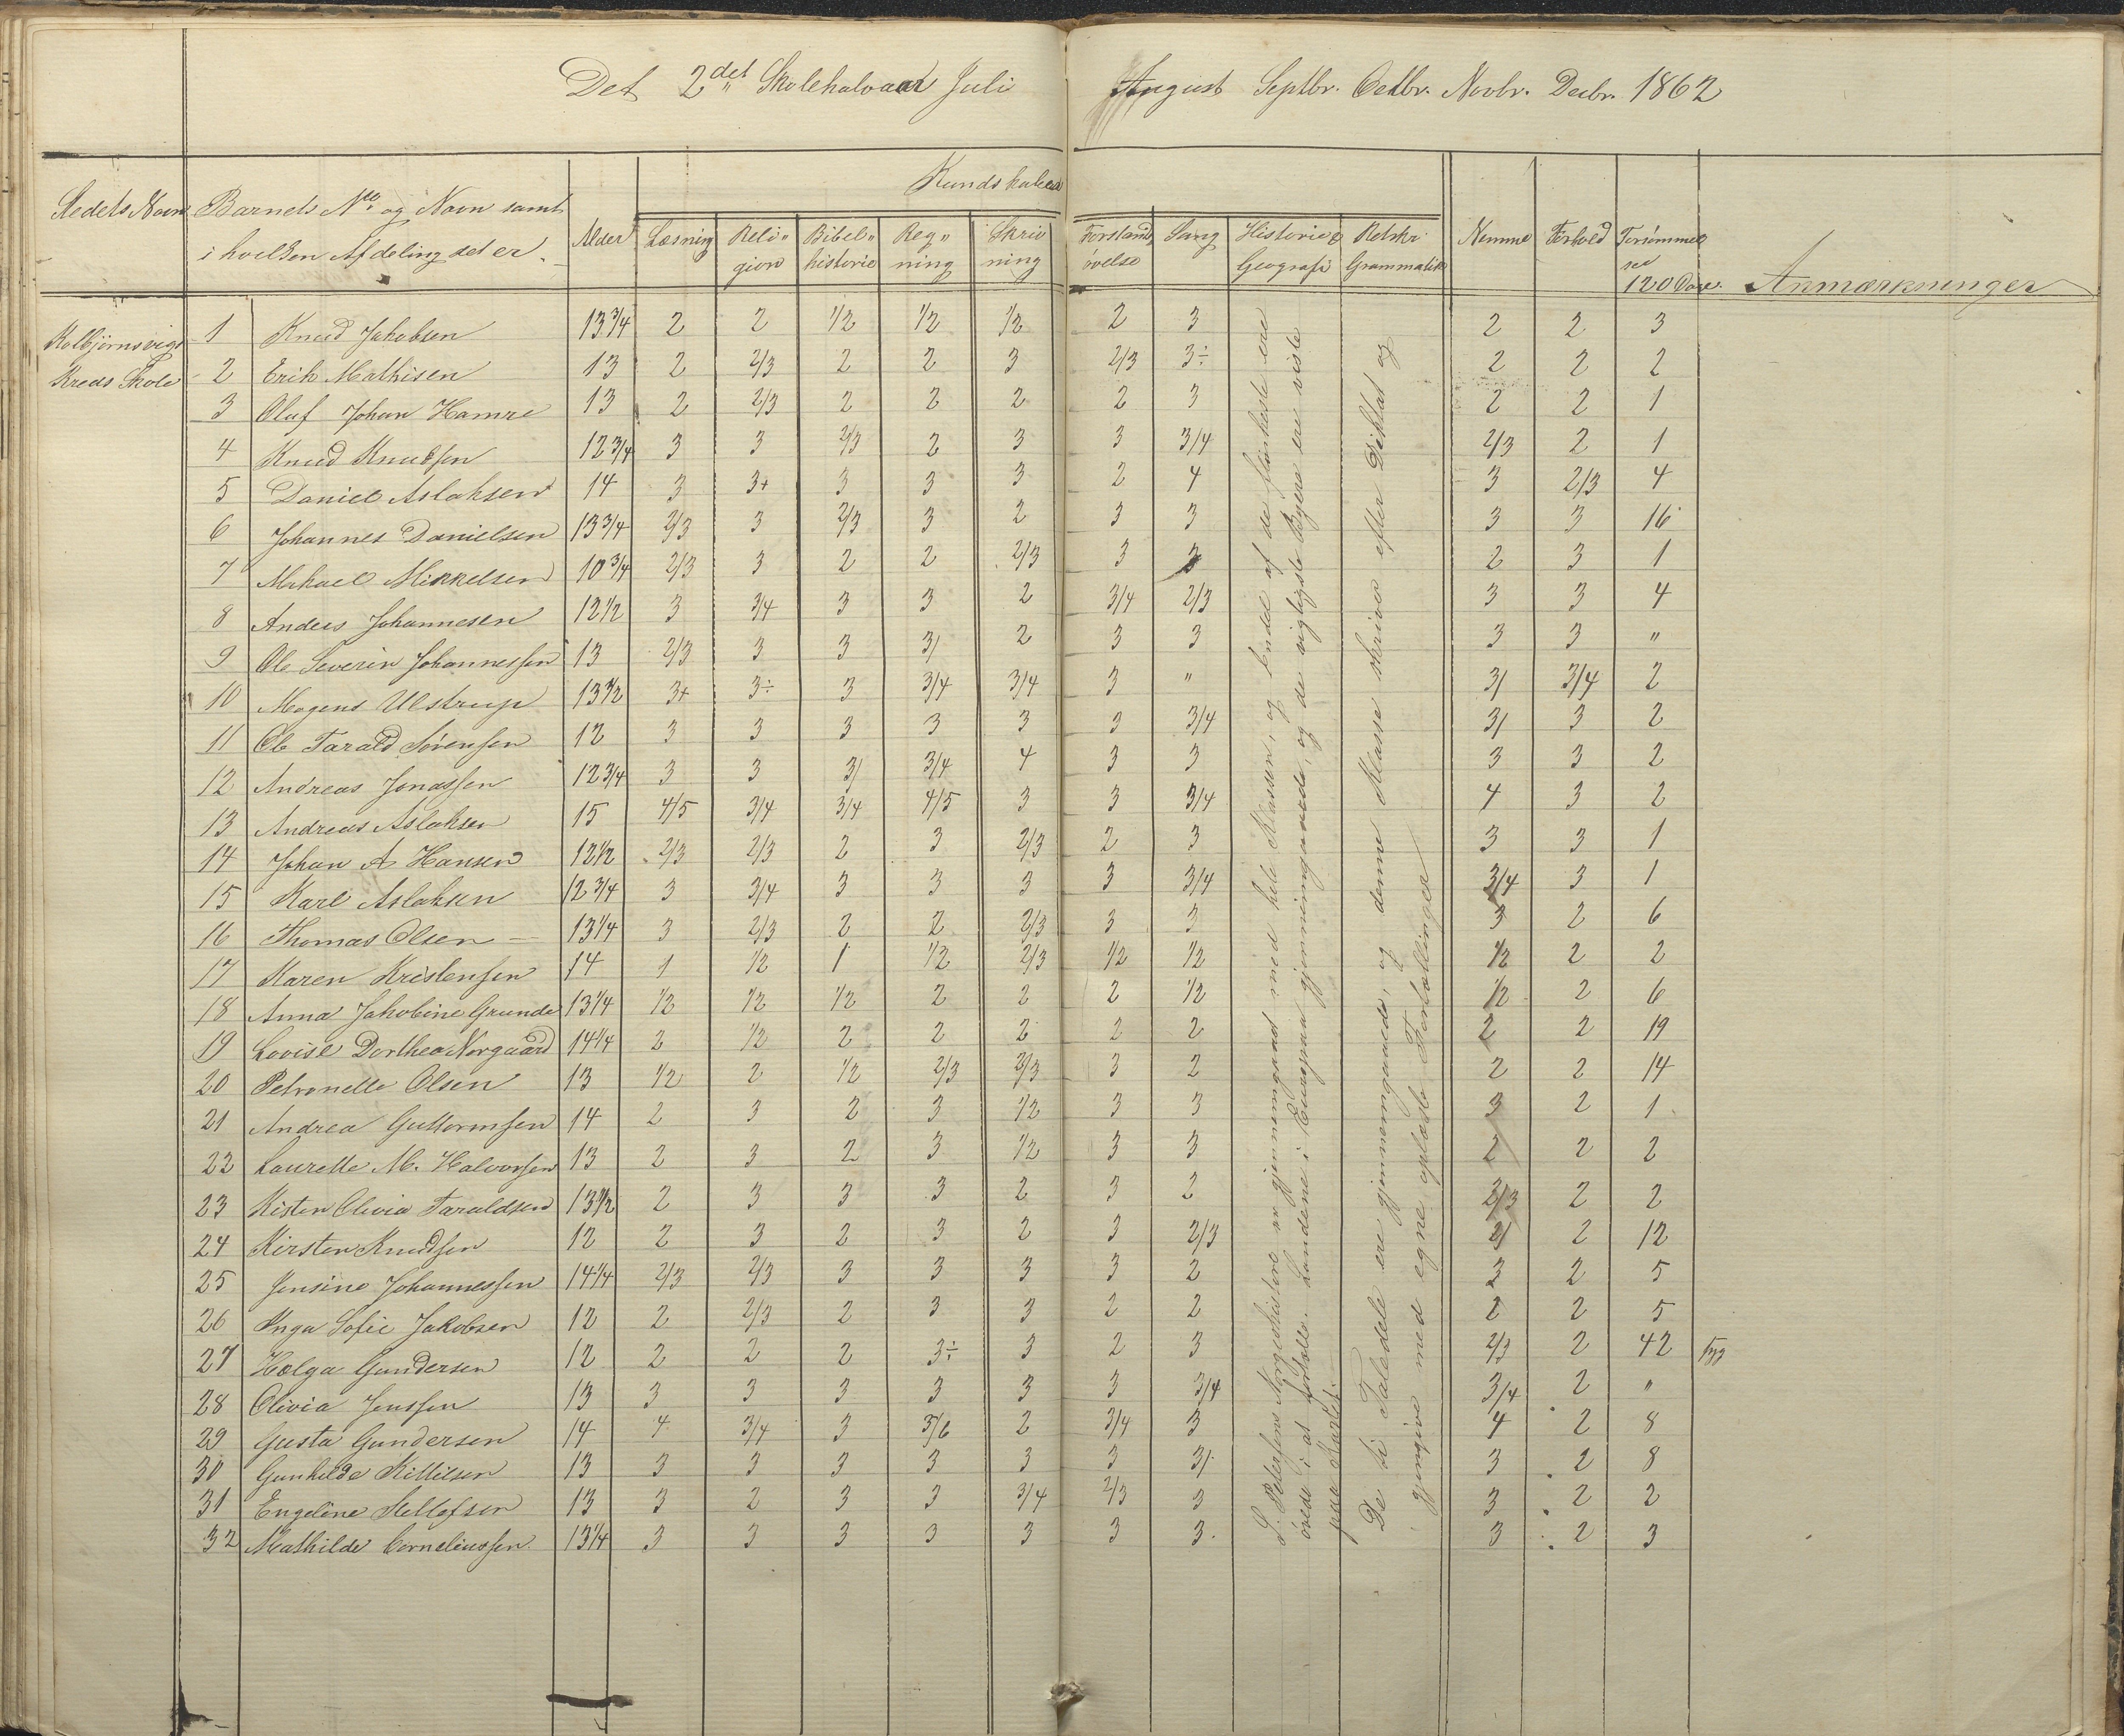 Det 2det Skolehalvaar Juli August Septbr. Octbr. Novbr. Decbr. 1862
Kundskaber
Stedets Navn Barnets No og Navn samt Alder Læsning Reli" Bibel" Reg" Skriv Forstands Sang Historie & Retskr. Nemme Forhold Forsømmel
i hvilken Afdeling det er gion historie ning ning øvelse Geografi Grammatik
120 Dage. Anmærkninger
Kolbjørnsvigs 1 Knud Jakobsen 13 3/4 2 2 1/2 1/2 1/2 2 3 2 2 3
Kreds Skole 2 Erik Mathisen 13 2 2/3 2 2 3 2/3 3÷ 2 2 2
3 Oluf Johan Hamre 13 2 2/3 2 2 2 2 3 2 2 1
4 Knud Knudsen 12 3/4 3 3 2/3 2 3 3 3/4 2/3 2 1
5 Daniel Aslaksen 14 3 3+ 3 3 3 2 4 3 2/3 4
6 Johannes Danielsen 13 3/4 2/3 3 2/3 3 2 3 3 3 3 16
7 Mikael Mikkelsen 10 3/4 2/3 3 2 2 2/3 3 3 2 3 1
8 Anders Johannesen 12 1/2 3 3/4 3 3 2 3/4 2/3 3 3 4
9 Ole Severin Johannessen 13 2/3 3 3 3/ 2 3 3 3 3 "
10 Mogens Ulstrup 13 1/2 3+ 3÷ 3 3/4 3/4 3 " 3/ 3/4 2
11 Ole Tarald Sørensen 12 3 3 3 3 3 3 3/4 3/ 3 2
12 Andreas Jonassen 12 3/4 3 3 3/ 3/4 4 3 3 3 3 2
13 Andreas Aslaksen 15 4/5 3/4 3/4 4/5 3 3 3/4 4 3 2
14 Johan A Hansen 12 1/2 2/3 2/3 2 3 2/3 2 3 3 3 1
15 Karl Aslaksen 12 3/4 3 3/4 3 3 3 3 3/4 3/4 3 1
16 Thomas Olsen 13 1/4 3 2/3 2 2 2/3 3 3 3 2 6
17 Karen Kristensen 14 1 1/2 1 1/2 2/3 1/2 1/2 1/2 2 2
18 Anna Jakobine Grunde 13 1/4 1/2 1/2 1/2 2 2 2 1/2 1/2 2 6
19 Lovise Dorthea Norgaard 14 1/4 2 1/2 2 2 2 2 2 2 2 19
20 Petronelle Olsen 13 1/2 2 1/2 2/3 2/3 3 2 2 2 14
21 Andrea Guttormsen 14 2 3 2 3 1/2 3 3 3 2 1
22 Laurette M. Halvorsen 13 2 3 2 3 1/2 3 3 2 2 2
23 Kisten Olivia Taraldsen 13 1/2 2 3 3 3 2 3 2 2/3 2 2
24 Kirsten Knudsen 12 2 3 2 3 2 3 2/3 2/ 2 12
25 Jensine Johannessen 14 1/4 2/3 2/3 3 3 3 3 2 3 2 5
26 Inga Sofie Jakobsen 12 2 2/3 2 3 3 2 2 2 2 5
27 Helga Gundersen 12 2 2 2 3÷ 3 2 3 2/3 2 42 syg
28 Olivia Jenssen 13 3 3 3 3 3 3 3/4 3/4 2 "
29 Gusta Gundersen 14 4 3/4 3 5/6 2 3/4 3 4 2 8
30 Gunhilde Killilsen 13 3 3 3 3 3 3 3/ 3 2 8
31 Engeline Stellefsen 13 3 2 3 3 3/4 2/3 3 3 2 2
32 Mathilde Corneliussen 13 1/4 3 3 3 3 3 3 3 3 2 3
S. Petersens Norgeshistorie er gjennemgaaet med hele Klassen, og Endel af de flinkeste ere
øvede i at fortælle. Landene i Europa gjennemgaaede, og de vigtigste Byer ere viste
paa Kartet.
De ti Taledele ere gjennemgaaede, og denne Klasse skriver efter Diktat og
gjengive med egne oplæste Fortællinger